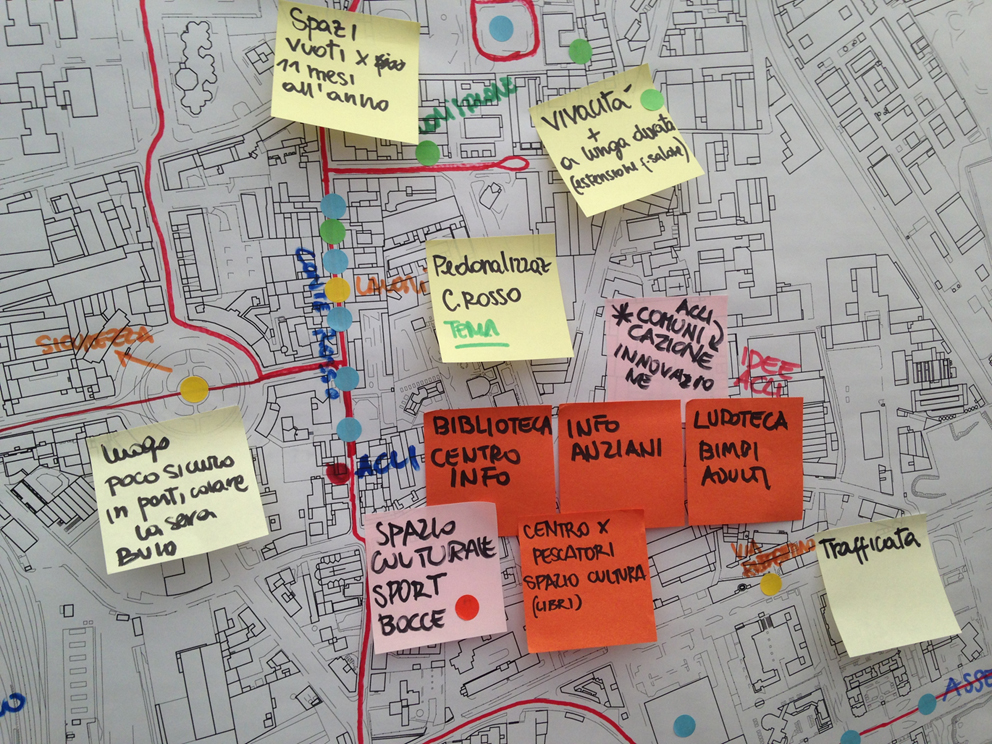 Spazi
vuoti x
11 mesi
all'anno
Vivacità
+
a lunga durata
(estensioni f. salone)
Pedonalizzaz
C. ROSSO
TEMA
CONTE ROSSO
SICUREZZA
luogo
poco sicuro
in particolare
la sera
BUIO
ACLI
* COMUNI
CAZIONE
INNOVAZIO
NE
IDEE
ACLI
ACLI
BIBLIOTECA
CENTRO
INFO
INFO
ANZIANI
LUDOTECA
BIMBI
ADULTI
SPAZIO
CULTURALE
SPORT
BOCCE
CENTRO X
PESCATORI
SPAZIO CULTURA
(LIBRI)
VIA
Trafficata
ASSE